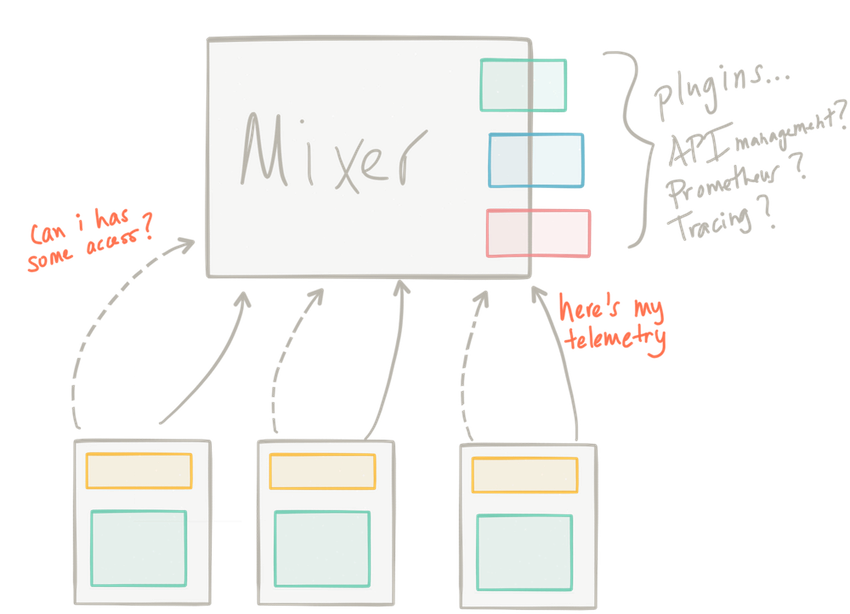 Mixer
plugins...
API management?
Prometheus?
Tracing?
Can i has
some access?
here's my
telemetry